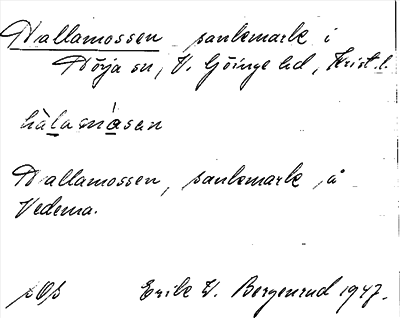 Hallamossen sankmark i
Nörja sn, V. Göinge hd, Krist. l.
hàlamåsan
Hallamossen, sankmark å
Vedema.
Erik W. Bergenrud 1947.